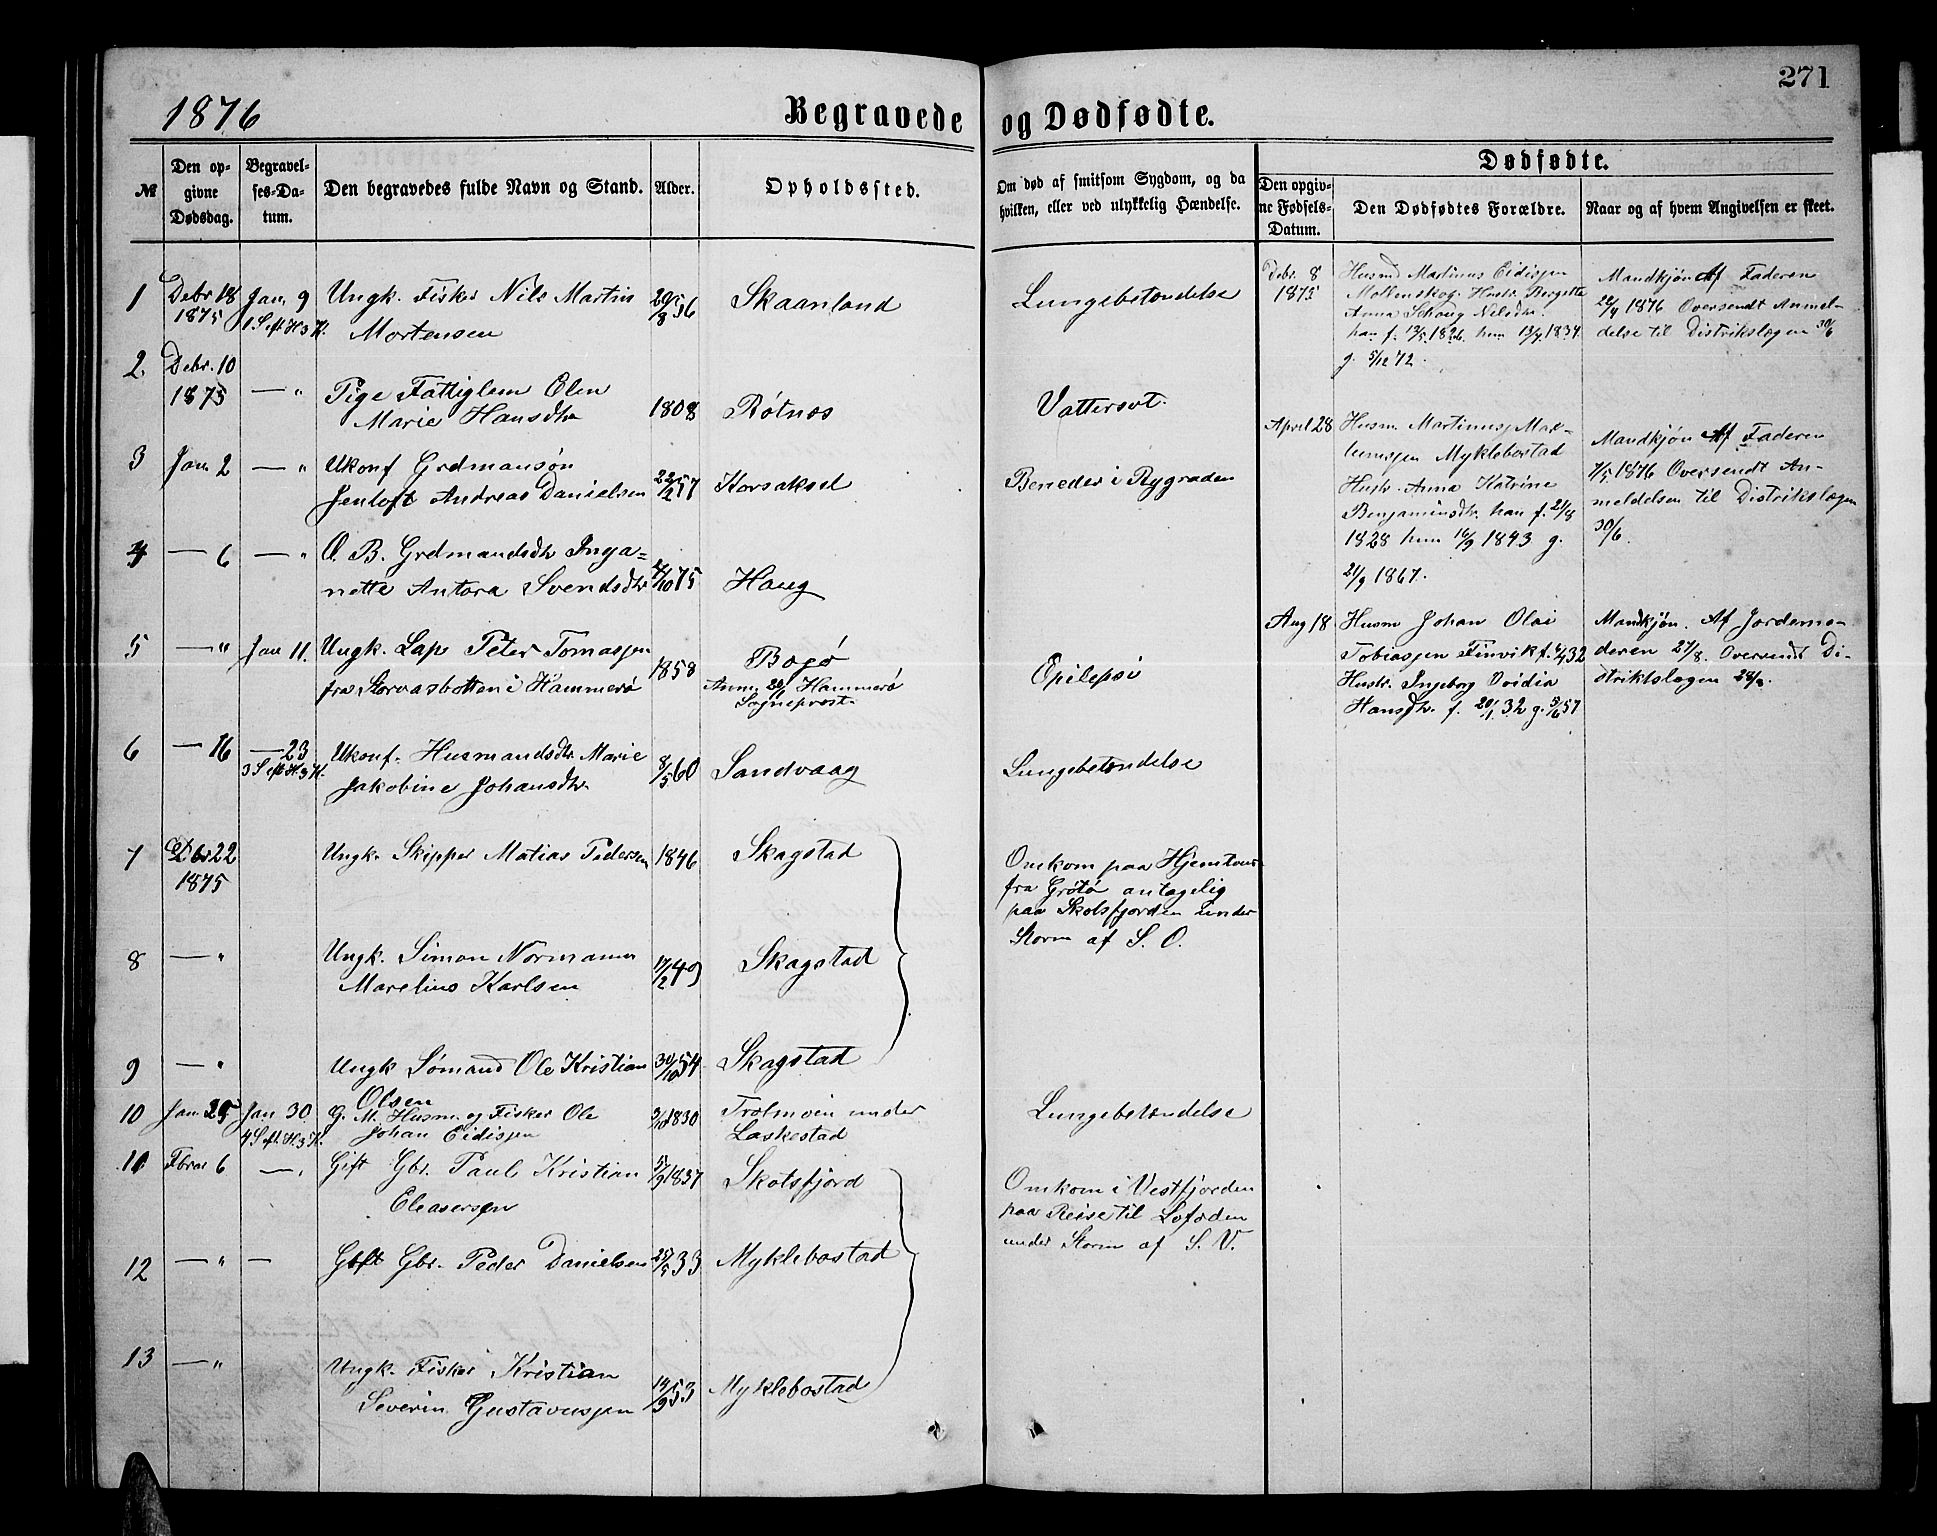 271
1876
Begravede og Dødfødte.
№
Den op-
givne
Dødsdag.
Begravel-
ses-Da-
tum.
Den begravedes fulde Navn og Stand.
Alder.
Opholdssted.
Om død af smitsom Sygdom, og da
hvilken, eller ved ulykkelig Hændelse.
Dødfødte.
Den opgiv-
ne Fødsels-
Datum.
Den Dødfødtes Forældre.
Naar og af hvem Angivelsen er skeet.
1 Debr 18 Jan. 9 Ungk. Fisker Nils Martin 20/8 56 Skaanland Lungebetændelse
1875 1 S. eft. H. 3 K. Mortensen
2. Debr. 10
1875 — " Pige Fattiglem Elen 1808 Røtnes Vattersot.
Marie Hansdtr
3 Jan. 2 — " Ukonf Grdmansøn
Jenloft Andreas Danielsen 22/2 57 Korsaksel Beneder i Rygraden
4 — 6 — " O. B. Grdmandsdtr Inga=
nette Antora Svendsdtr 4/10 75 Haug
5 — " Jan 11. Ungk. Lap Peter Tomassen 1858 Bogø Epilepsi
fra Storvasbotten i Hammerø Anm. 20/1 Hammerø
Sogneprest
6 — 16 — 23 Ukonf. Husmandsdtr. Marie 8/5 60 Sandvaag Lungebetændelse
3 S. eft. H. 3 K. Jakobine Johansdtr.
7 Dbr 22 Ungk. Skipper Matias Pedersen 1846 Skagstad
1875
Omkom paa Hjemtour
fra Grøtø antagelig
paa Skotsfjorden under
Storm af S. O.
8 — " Ungk. Simon Normann 17/2 49 Skagstad
Marelius Karlsen
9 — " Ungk Sømand Ole Kristian 30/10 54 Skagstad
Olsen
10 Jan. 25 Jan. 30. g. M. Husm. og Fisker Ole 3/10 1830 Trolmoen under Lungebetændelse
4 S. eft. H. 3 K. Johan Eidissen Laskestad
11 Fbrar 6 — " Gift Gbr. Paul Kristian 5/9 1837 Skotsfjord
Eleasersen
Omkom i Vestfjorden
paa Reise til Lofoden
under Storm af S. V.
12 — " — Gift Gbr. Peder Danielsen 25/5 33 Myklebostad
13 — " Ungk. Fisker Kristian
Severin Gustavussen 14/9 53 Myklebostad
Debr. 8
1875
Husmd Martinus Eidissen
Mollenskog Hustr. Bergette
Anna Schaug Nilsdtr.
han f. 13/5 1826. hun 13/9 1834
g. 5/12 72.
Mandkjøn Af Faderen
22/4 1876 Oversendt Anmel-
delse til Distrikslægen 30/6
April 28
Husm. Martinus Mar-
kussen Myklebostad
Hustr. Anna Katrine
Benjaminsdtr. han f. 21/8
1828 hun 16/9 1843 g.
21/9 1867.
Mandkjøn Af Faderen
7/5 1876 Oversendt An-
meldelsen til Distrikslægen
30/6.
Aug 18
Husm Johan Olai
Tobiassen Finvik f. 4/4 32
Hustr. Ingeborg Ovidia
Hansdtr. f. 20/1 32 g. 5/6 57
Mandkjøn. Af Jordemo-
deren 27/8. Oversendt Di-
striktslægen 28/8.